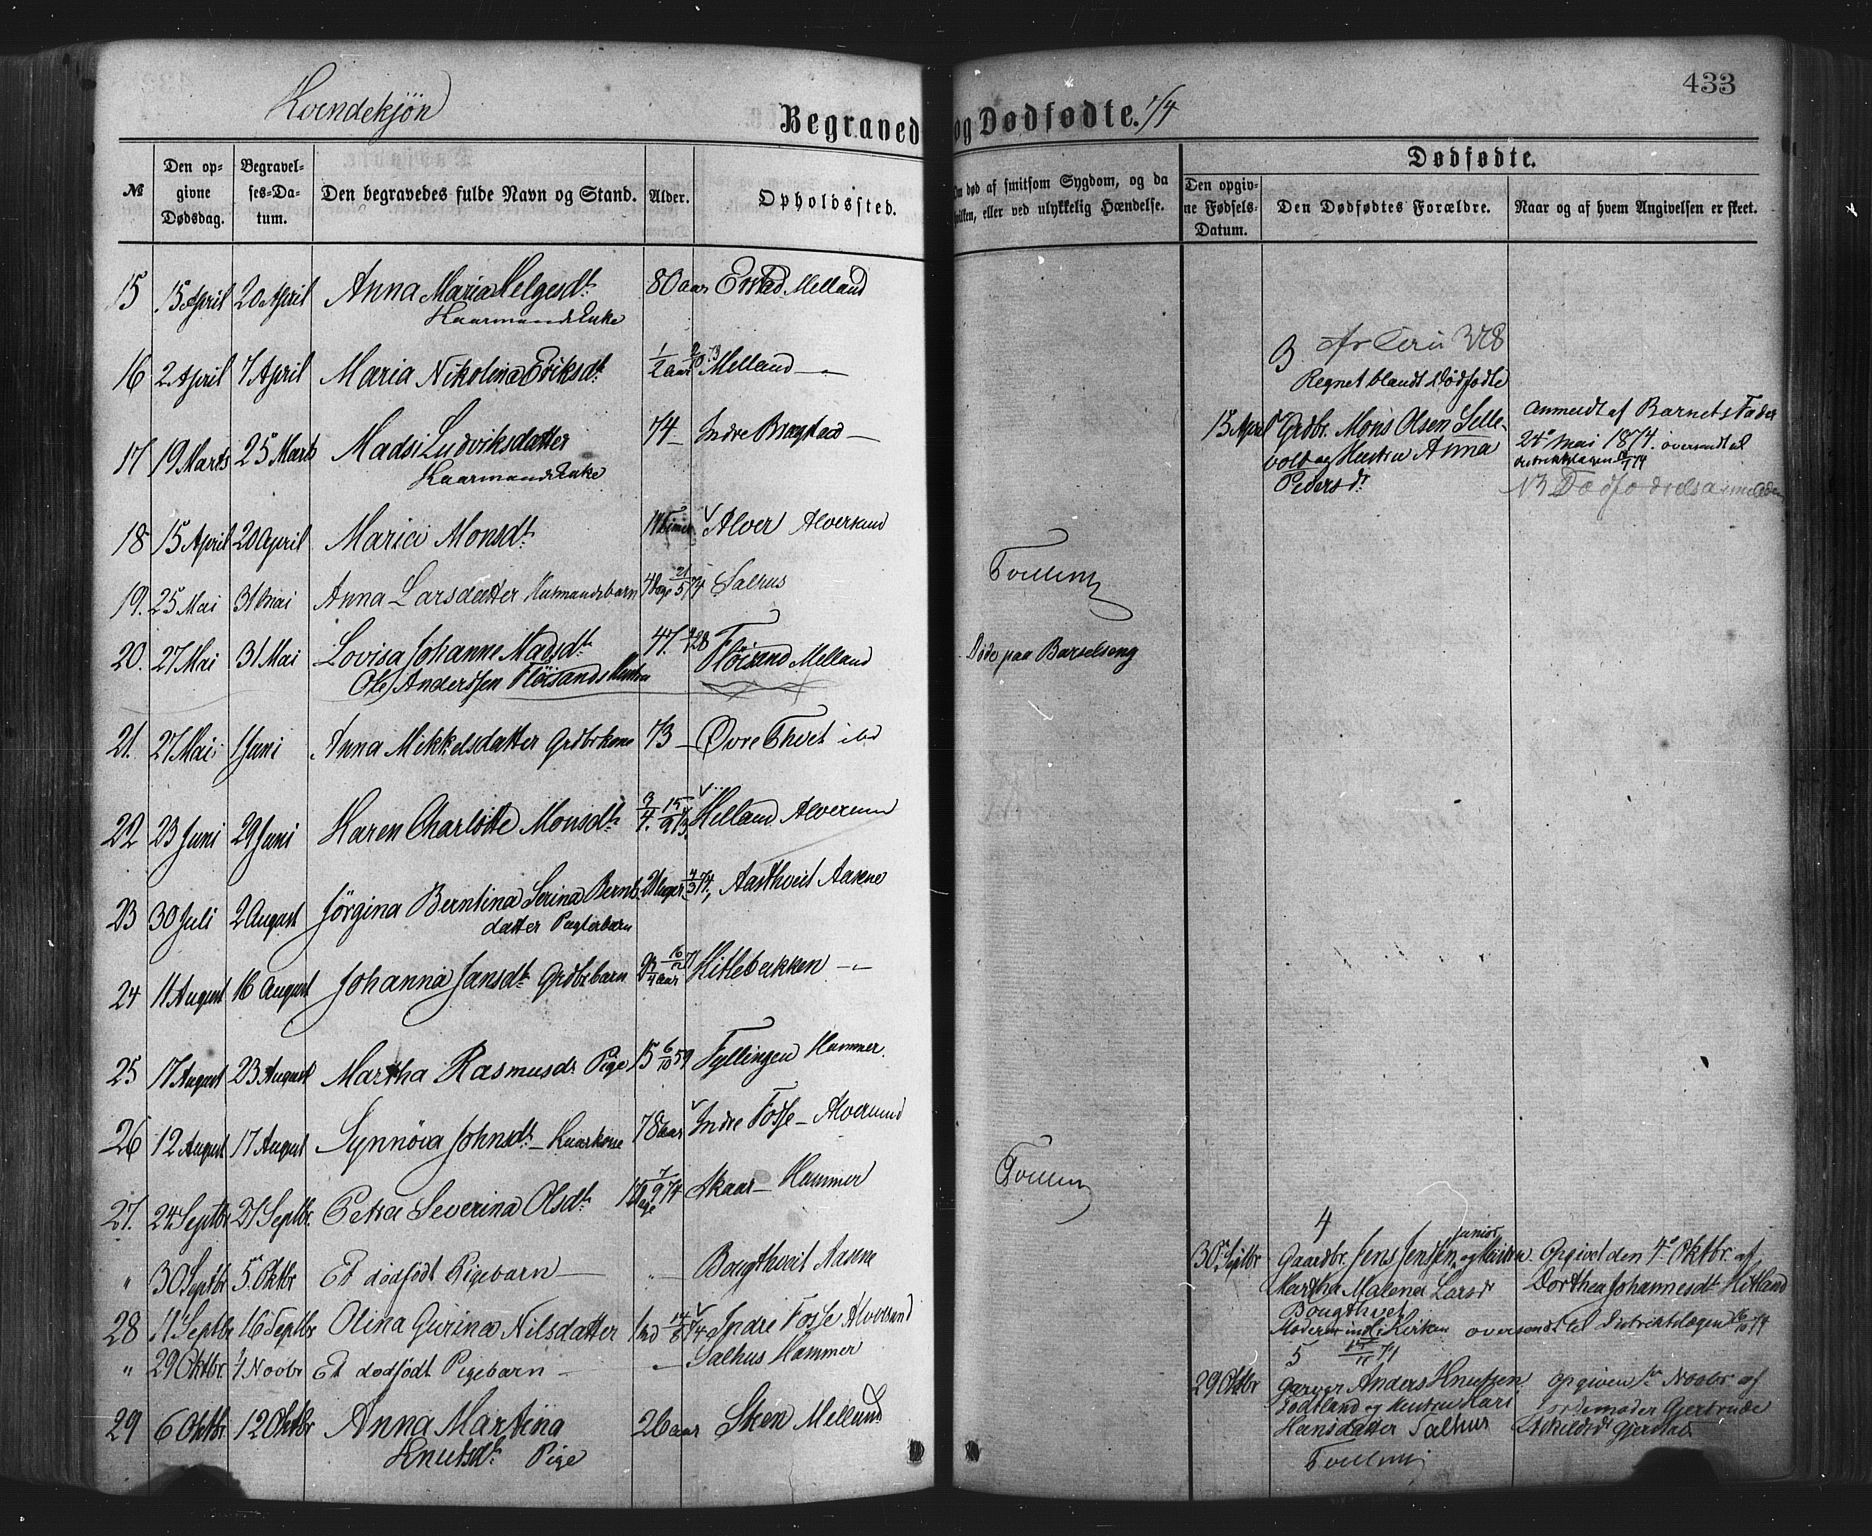 433
Kvendekjön
Begravede og Dødfødte.
Dødfødte.
№
Den opgivne Dødsdag.
Begravelses-Datum.
Den begravedes fulde Navn og Stand.
Alder.
Opholdssted.
Om død af smitsom Sygdom, og da hvilken, eller ved ulykkelig Hændelse.
Den opgivne Fødsels-Datum.
Den Dødfødtes Forældre.
Naar og af hvem Angivelsen er skeet.
15 15 April 20 April Anna Maria Helgesdt. 80 aar Melland
Kaarmands Enke
16 2 April 7 April Maria Nikolina Eriksdt. 1/2 aar Melland —
3
Regnet blandt Dødfødte
17 19 Marts 25 Marts Madsi Ludviksdatter 74 — Indre Brogstad —
Kaarmands Enke
15 April Grdbr. Mons Olsen Selle-
vold og Hustru Anna
Pedersdr
Anmeldt af Barnets Fader
24de Mai 1874. oversendt til
18 15 April 20 April Maria Monsdt. Alver Alversund
19. 25 Mai 31 Mai Anna Larsdatter Husmandsbarn 4 Dage 21/5 74 Salhus
20. 27 Mai 31 Mai Lovisa Johanne Madsdt. 47 Flöisand Melland
Ole Anderssen Flöisands Hustru
Døde paa Barselseng
21. 27 Mai 1 Juni Anna Mikkelsdatter Grdbrkone 73 — Øvre Thvet ibd
22 23 Juni 29 Juni Karen Charlotte Monsdt. 3/4 Helland Alversund
23 30 Juli 2 August Jörgina Berntina Serina Bernts-
datter Pagterbarn
Aasthveit Aasene
24 11 August 16 August Johanna Jansdt. Grdbrbarn 2 3/4 aar Hitlebakken —
25 17 August 23 August Martha Rasmusdr Pige 15 6/10 59 Fyllingen Hammer.
26 12 August 17 August Synnöva Johnsdt. — Kaarkone 78 aar Indre Fosse — Alversund
27. 24 Septbr 27 Septbr. Petra Severina Olsdt. 17 Dage 7/9 74 Skaar — Hammer
" 30 Septbr 5. Oktbr Et dödfödt Pigebarn — " — Bougthveit Aasene
4
30 Septbr Gaardbr. Jens Jensen junior og Hustru
Martha Malena Larsdr
Bougthvet
Moderen indl. i Kirken
15/11 74
Opgivet den 4de Oktbr. af
Dorthea Johannesdt Hitland
oversendt til Distriktslægen 16/10 74
28 11 Septbr 16 Septbr Olina Gurina Nilsdatter 1 Md Indre Fosse Alversund
" 29 Oktbr. 4 Novbr Et dödfödt Pigebarn — " Salhus Hammer
5
29 Oktbr Garver Anders Knutsen
Hustru Kari
Hansdatter Salhus
opgiven 1ste Novbr af
Jordemoder Gjertrude
29 6 Oktbr 12 Oktbr Anna Martina 26 aar Sken Melland
Knutsdt. Pige